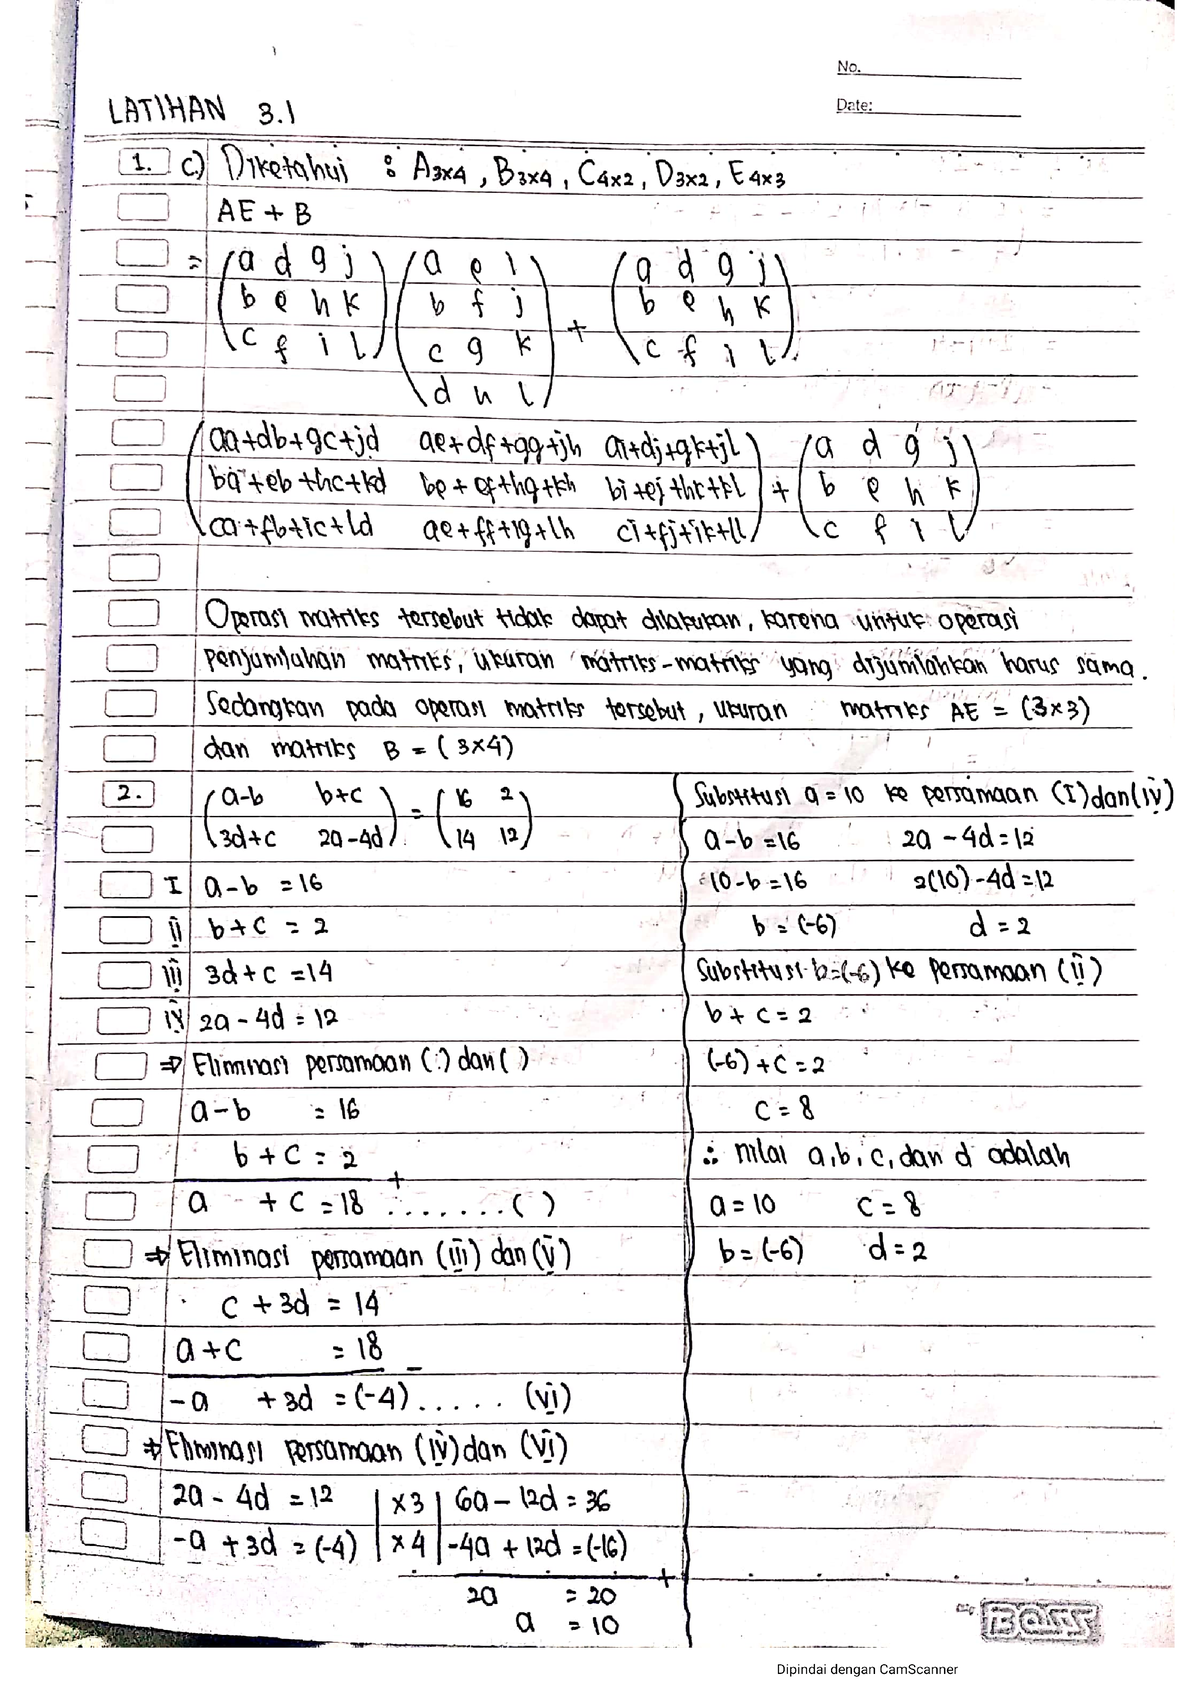 No.
Date:
LATIHAN 3.1
1. c) Diketahui : A3x4, B3x4, C4x2, D3x2, E4x3
AE + B
= (a d g j) (a e i) (a d g j)
(b e h k) (b f j) + (b e h k)
(c f i l) (c g k) (c f i l)
(d h l)
(aa+db+gc+jd ae+df+gg+jh ai+dj+gk+jl) (a d g j)
(ba+eb+hc+kd be+ef+hg+kh bi+ej+hk+kl) + (b e h k)
(ca+fb+ic+ld ae+ff+ig+lh ci+fj+ik+ll) (c f i l)
Operasi matriks tersebut tidak dapat dilakukan, karena untuk operasi
penjumlahan matriks, ukuran matriks-matriks yang dijumlahkan harus sama.
Sedangkan pada operasi matriks tersebut, ukuran matriks AE = (3x3)
dan matriks B = (3x4)
2. (a-b b+c) = (16 2)
(3d+c 2a-4d) (14 12)
I a-b = 16
ii b+c = 2
iii 3d+c = 14
iv 2a-4d = 12
⇒ Eliminasi persamaan (:) dan ( )
a-b = 16
b+c = 2 +
a + c = 18 ....... ( )
⇒ Eliminasi persamaan (iii) dan (v)
c + 3d = 14
a+c = 18 -
-a + 3d = (-4) ..... (vi)
⇒ Eliminasi persamaan (iv) dan (vi)
2a - 4d = 12 | x3 | 6a - 12d = 36
-a + 3d = (-4) | x4 | -4a + 12d = (-16) +
2a = 20
a = 10
Substitusi a = 10 ke persamaan (I) dan (iv)
a-b = 16 2a - 4d = 12
10-b = 16 2(10)-4d = 12
b = (-6) d = 2
Substitusi b=(-6) ke persamaan (ii)
b + c = 2
(-6) + c = 2
c = 8
∴ nilai a, b, c, dan d adalah
a = 10 c = 8
b = (-6) d = 2
Boss
Dipindai dengan CamScanner